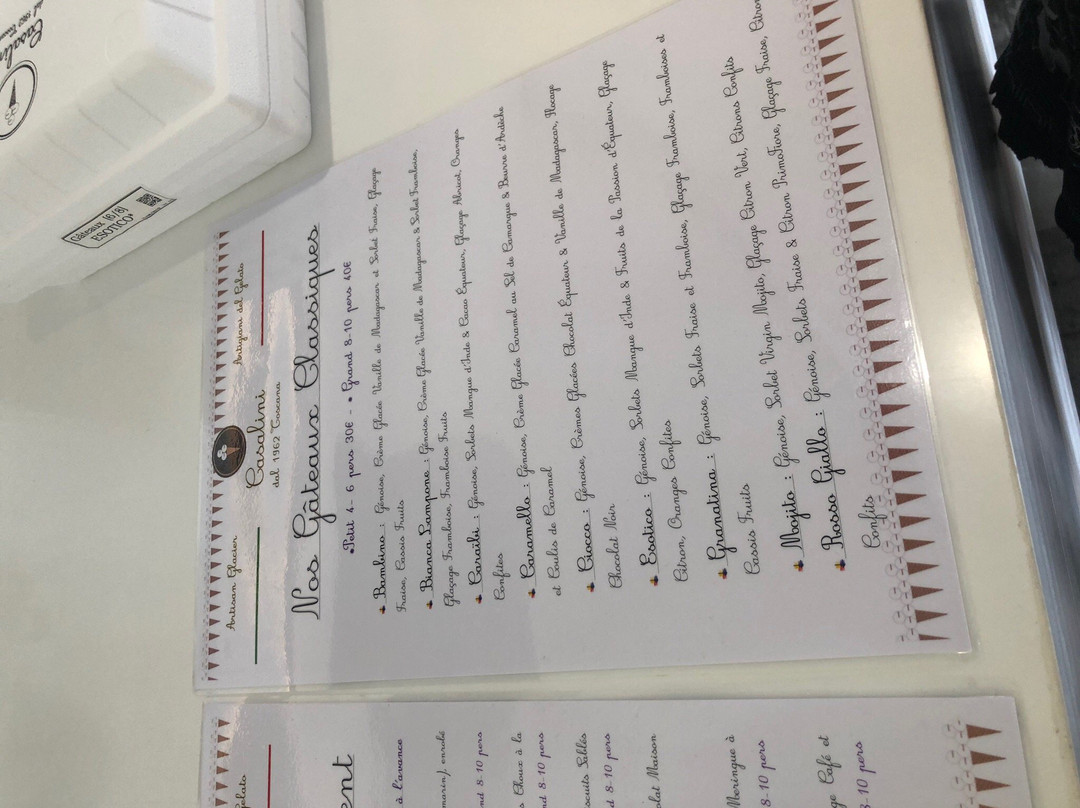 Casalini
dal 1962 Toscana
Gâteaux (6/8)
ESOTICO*
Artisan Glacier
Artigiani del Gelato
Casalini
dal 1962 Toscana
Nos Gâteaux Classiques
•Petit 4- 6 pers 30€ - • Grand 8-10 pers 40€
Bambino : Génoise, Crème Glacée Vanille de Madagascar et Sorbet Fraise, Glaçage
Fraise, Cassis Fruits
Bianca Lampone : Génoise, Crème Glacée Vanille de Madagascar & Sorbet Framboise,
Glaçage Framboise, Framboise Fruits
Caraïbi : Génoise, Sorbets Mangue d'Inde & Cacao Équateur, Glaçage Abricot, Oranges
Confites
Caramello : Génoise, Crème Glacée Caramel au Sel de Camargue & Beurre d'Ardèche
et Coulis de Caramel
Ciocco : Génoise, Crèmes Glacées Chocolat Équateur & Vanille de Madagascar, Flocage
Chocolat Noir
Esotico : Génoise, Sorbets Mangue d'Inde & Fruits de la Passion d'Équateur, Glaçage
Citron, Oranges Confites
Granatina : Génoise, Sorbets Fraise et Framboise, Glaçage Framboise, Framboises et
Cassis Fruits
Mojito : Génoise, Sorbet Virgin Mojito, Glaçage Citron Vert, Citrons Confits
Rosso Giallo : Génoise, Sorbets Fraise & Citron PrimoFiore, Glaçage Fraise, Citron
Confits
gelato
ent
à l'avance
marin), enrobé
nd 8-10 pers
s Choux à la
nd 8-10 pers
scuits Sablés
d 8-10 pers
olat Maison
Meringue à
8-10 pers
ge Café et
8-10 pers